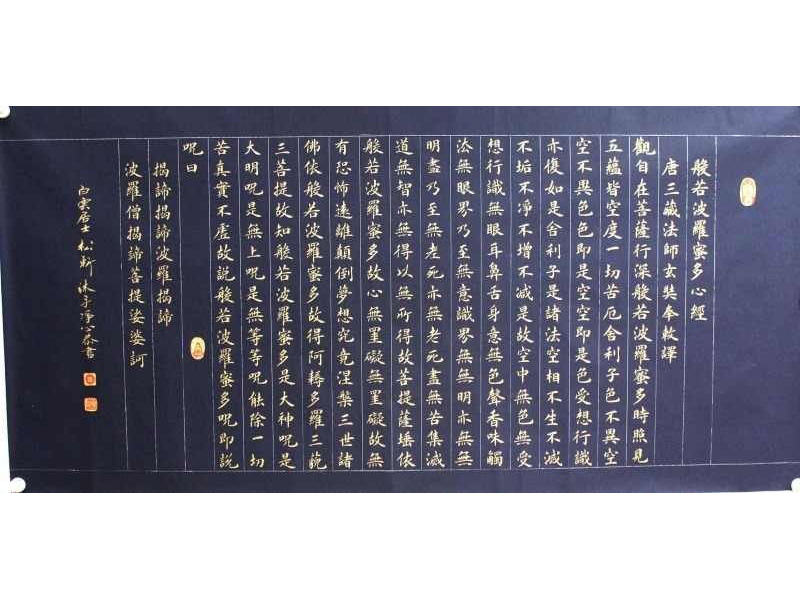 般若波羅蜜多心經
唐三藏法師玄奘奉敕譯
觀自在菩薩行深般若波羅蜜多時照見
五蘊皆空度一切苦厄舍利子色不異空
空不異色色即是空空即是色受想行識
亦復如是舍利子是諸法空相不生不滅
不垢不淨不增不減是故空中無色無受
想行識無眼耳鼻舌身意無色聲香味觸
法無眼界乃至無意識界無無明亦無無
明盡乃至無老死亦無老死盡無苦集滅
道無智亦無得以無所得故菩提薩埵依
般若波羅蜜多故心無罣礙無罣礙故無
有恐怖遠離顛倒夢想究竟涅槃三世諸
佛依般若波羅蜜多故得阿耨多羅三藐
三菩提故知般若波羅蜜多是大神呪是
大明呪是無上呪是無等等呪能除一切
苦真實不虛故說般若波羅蜜多呪即說
呪曰
揭諦揭諦波羅揭諦
波羅僧揭諦菩提娑婆訶
白雲居士松沐手淨心恭書